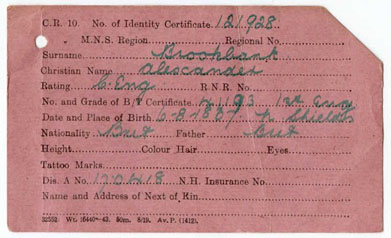 C.R. 10. No. of Identity Certificate 121928
M.N.S. Region Regional No.
Surname Brookbank
Christian Name Alexander
Rating C Eng R.N.R. No.
No. and Grade of B/T Certificate 1st Eng
Date and Place of Birth 6-8-1887 N Shields
Nationality Brit Father Brit
Height Colour Hair Eyes
Tattoo Marks
Dis. A No. 1706418 N.H. Insurance No.
Name and Address of Next of Kin
32552. Wt. 16440—43. 50m. 8/19. Av. P. (1412).